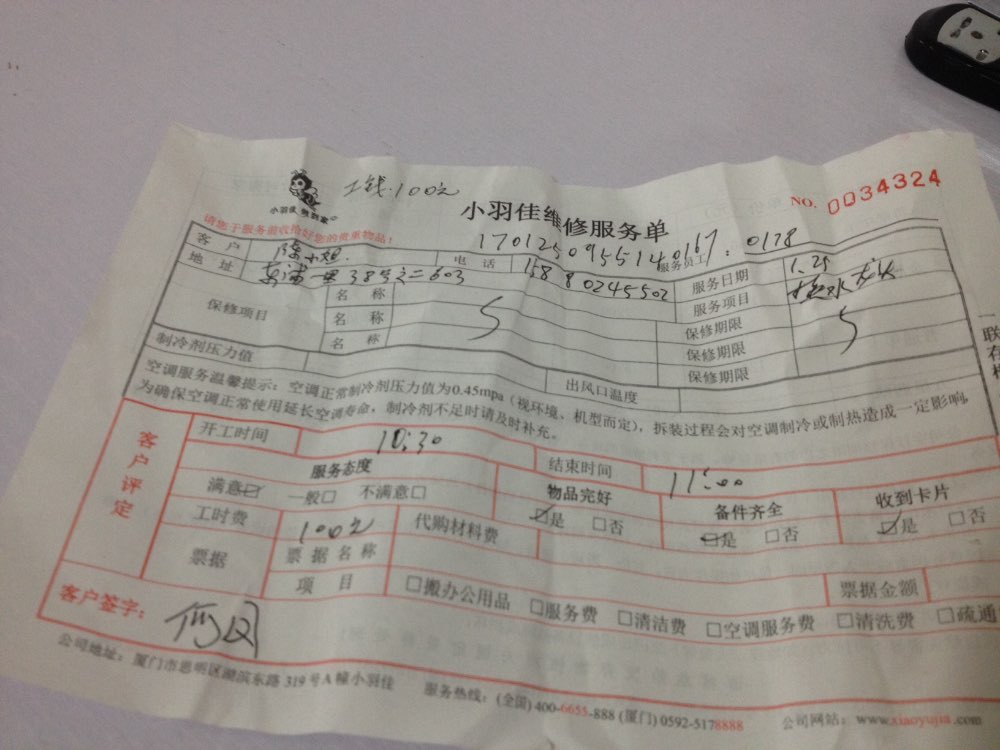 工钱.100元
NO. 0034324
小羽佳 做到家
小羽佳维修服务单
请您于服务前收拾好您的贵重物品!
1701250955140167
服务员工: 0178
客户 陈小姐. 电话 15880245502 服务日期 1.25
地址 东浦一里38号之二603 服务项目 换水龙头
保修项目 名称 保修期限
名称 保修期限
名称 保修期限
制冷剂压力值 出风口温度
空调服务温馨提示: 空调正常制冷剂压力值为0.45mpa (视环境、机型而定), 拆装过程会对空调制冷或制热造成一定影响,
为确保空调正常使用延长空调寿命, 制冷剂不足时请及时补充。
客户评定
开工时间 10:30 结束时间 11:00
服务态度 物品完好 备件齐全 收到卡片
满意☑ 一般□ 不满意□ ☑是 □否 ☑是 □否 ☑是 □否
工时费 100元 代购材料费
票据 票据名称 票据金额
项目 □搬办公用品 □服务费 □清洁费 □空调服务费 □清洗费 □疏通
客户签字:
公司地址: 厦门市思明区湖滨东路319号A幢小羽佳 服务热线: (全国) 400-6655-888 (厦门) 0592-5178888 公司网站: www.xiaoyujia.com